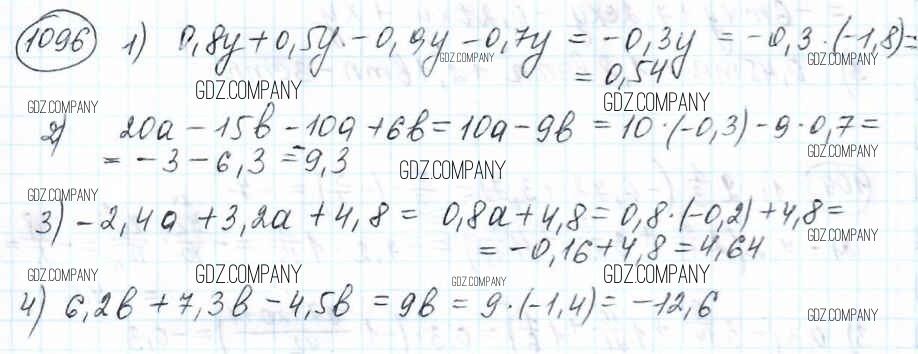 1096 1) 0,8y + 0,5y - 0,9y - 0,7y = -0,3y = -0,3 · (-1,8) =
GDZ.COMPANY GDZ.COMPANY
= 0,54
GDZ.COMPANY GDZ.COMPANY GDZ.COMPANY
2) 20a - 15b - 10a + 6b = 10a - 9b = 10 · (-0,3) - 9 · 0,7 =
GDZ.COMPANY
= -3 - 6,3 = -9,3
GDZ.COMPANY
GDZ.COMPANY
3) -2,4a + 3,2a + 4,8 = 0,8a + 4,8 = 0,8 · (-0,2) + 4,8 =
GDZ.COMPANY
= -0,16 + 4,8 = 4,64
GDZ.COMPANY GDZ.COMPANY GDZ.COMPANY GDZ.COMPANY
4) 6,2b + 7,3b - 4,5b = 9b = 9 · (-1,4) = -12,6
GDZ.COMPANY